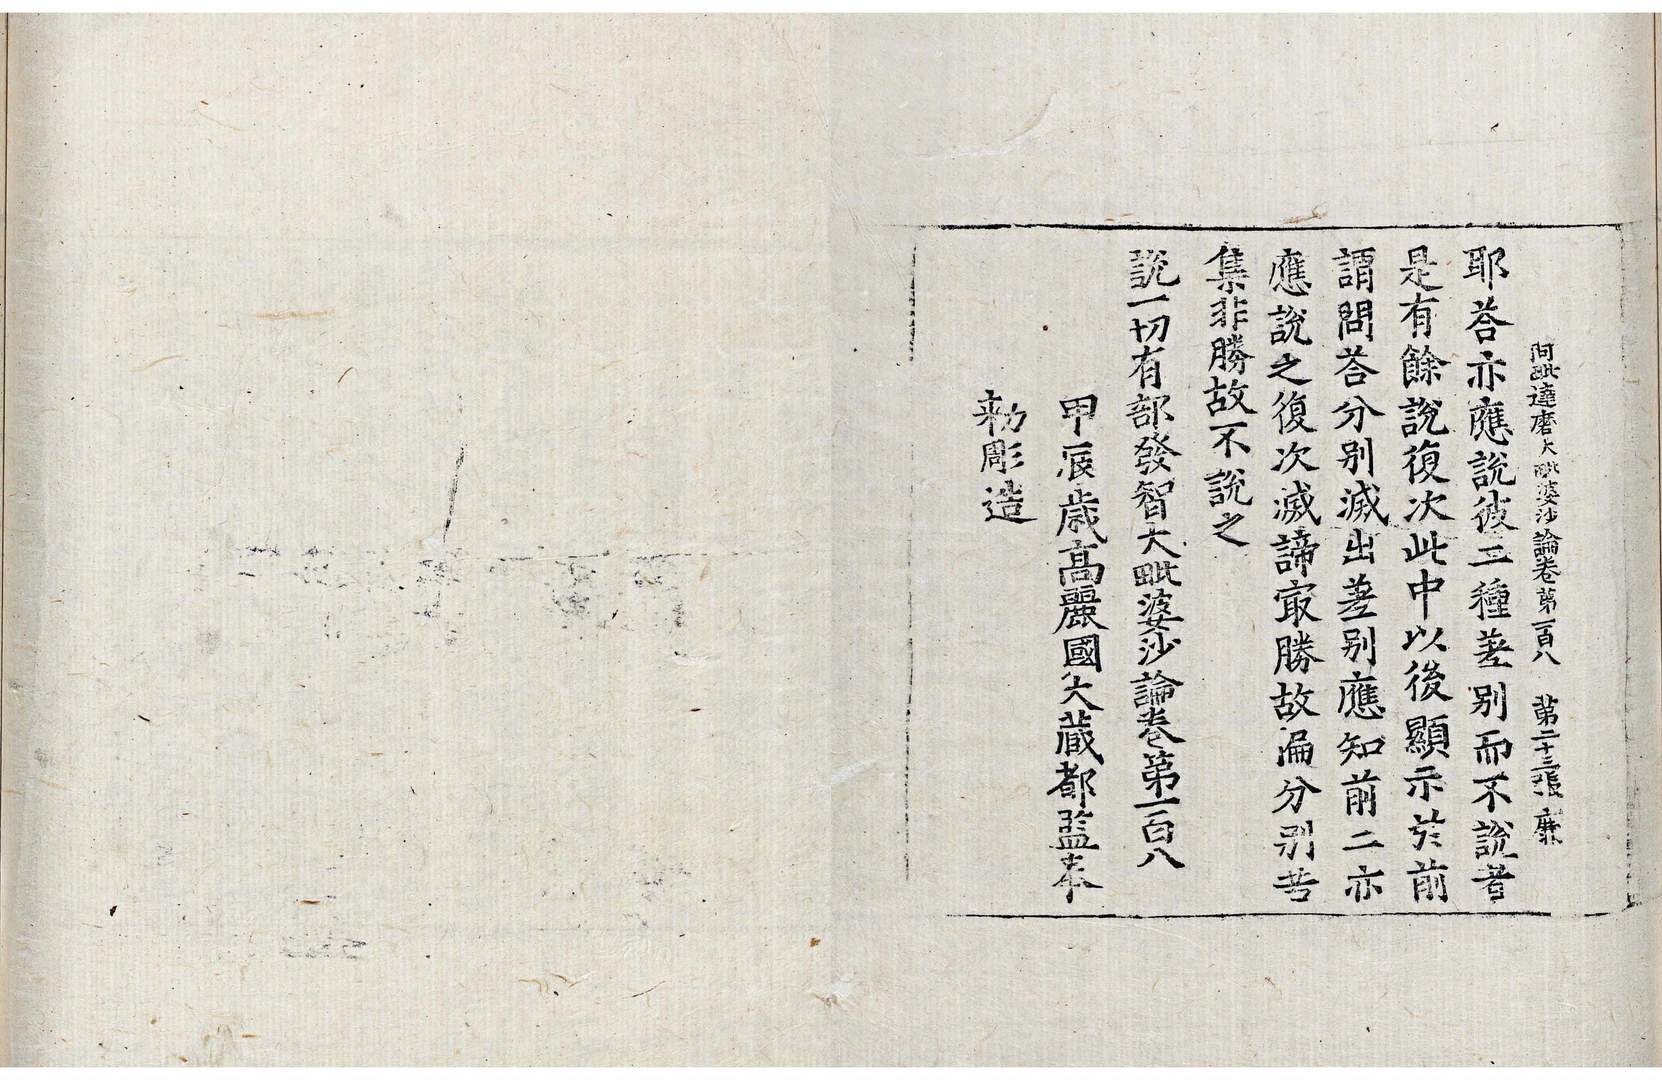 阿毗達磨大毗婆沙論卷第一百八 第二十三張 廉
耶荅亦應說彼二種差别而不說者
是有餘說復次此中以後顯示於前
謂問荅分别滅出差别應知前二亦
應說之復次滅諦㝡勝故漏分别苦
集非勝故不說之
說一切有部發智大毗婆沙論卷第一百八
甲辰歲高麗國大藏都監奉
勑彫造